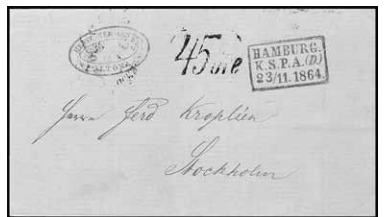 45 öre
HAMBURG.
K.S.P.A.(D.)
23/11.1864.
Herrn Ferd Kroplien
Stockholm